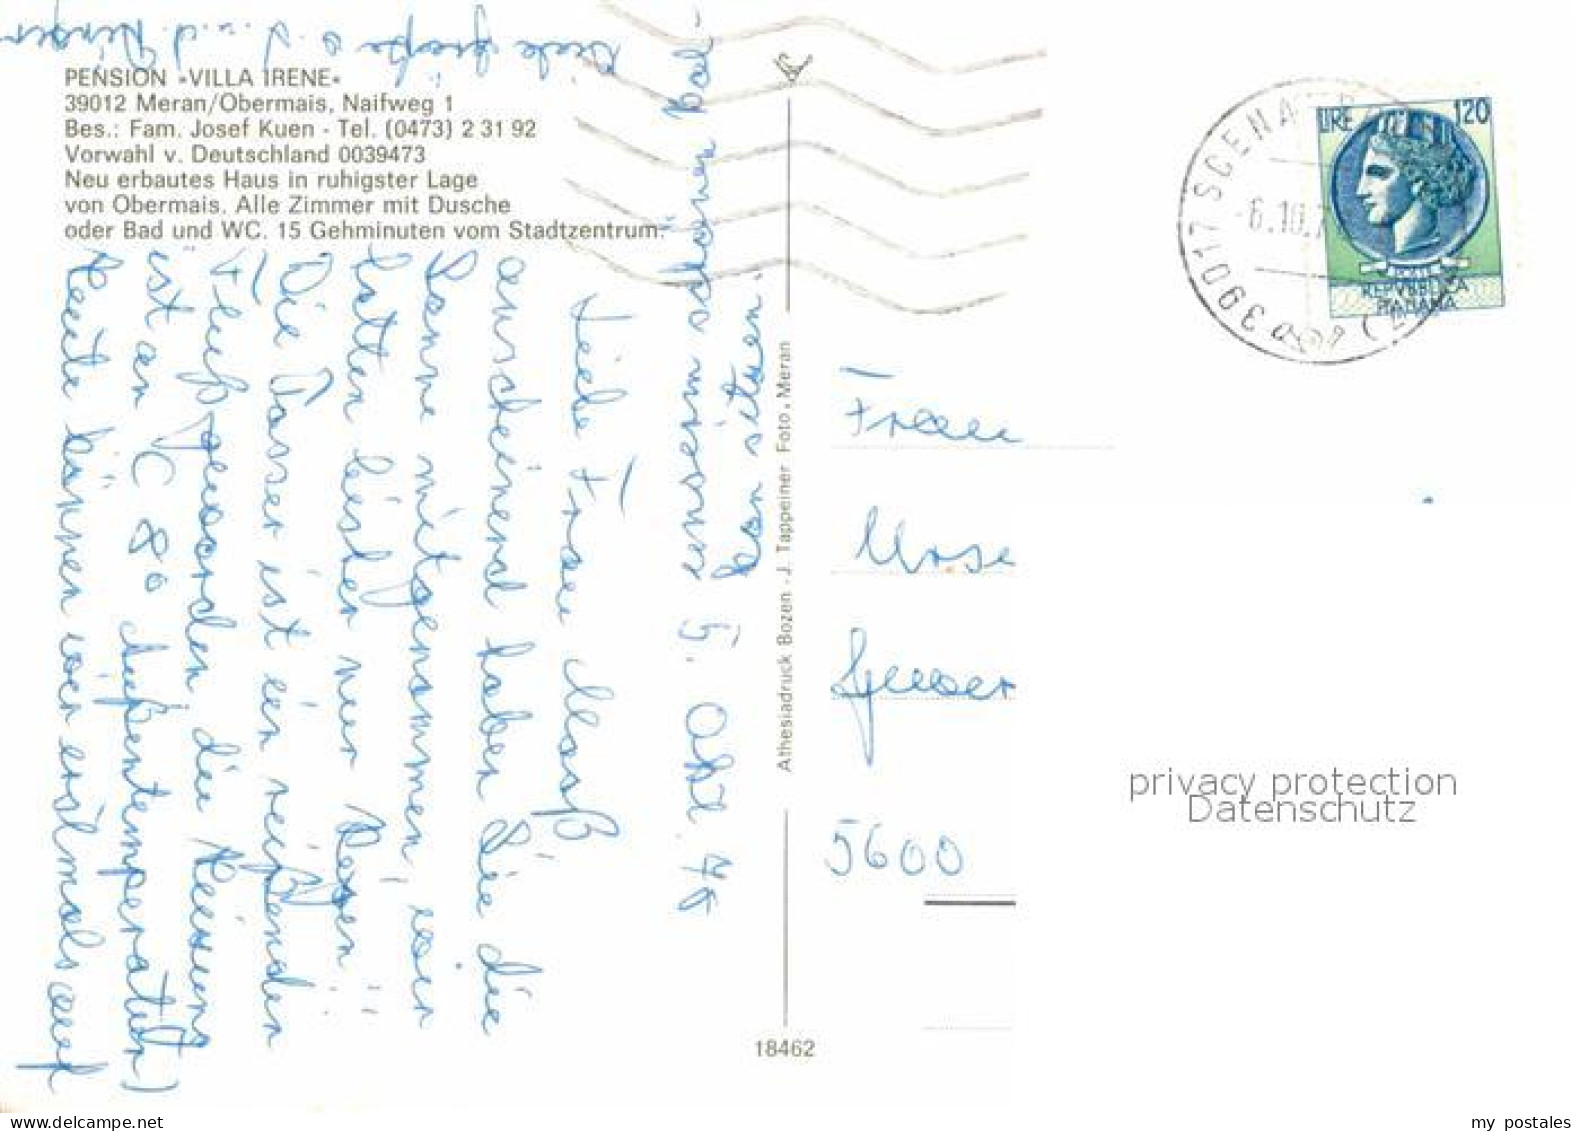 PENSION »VILLA IRENE«
39012 Meran/Obermais, Naifweg 1
Bes.: Fam. Josef Kuen - Tel. (0473) 2 31 92
Vorwahl v. Deutschland 0039473
Neu erbautes Haus in ruhigster Lage
von Obermais. Alle Zimmer mit Dusche
oder Bad und WC. 15 Gehminuten vom Stadtzentrum.
5. Okt.
Liebe Frau
anscheinend haben Sie die
Sonne mitgenommen, wir
hatten bisher nur Regen!!
Die Passer ist ein reißender
Fluß geworden, die
ist an 8° Außentemperatur)
Heute können wir erstmals auf
unserem schönen Bal-
kon sitzen.
Viele Grüße
Athesiadruck Bozen - J. Tappeiner Foto, Meran
18462
39017 SCENA
6.10.7
LIRE 120
POSTE
REPVBBLICA
ITALIANA
Frau
5600
privacy protection
Datenschutz
my postales